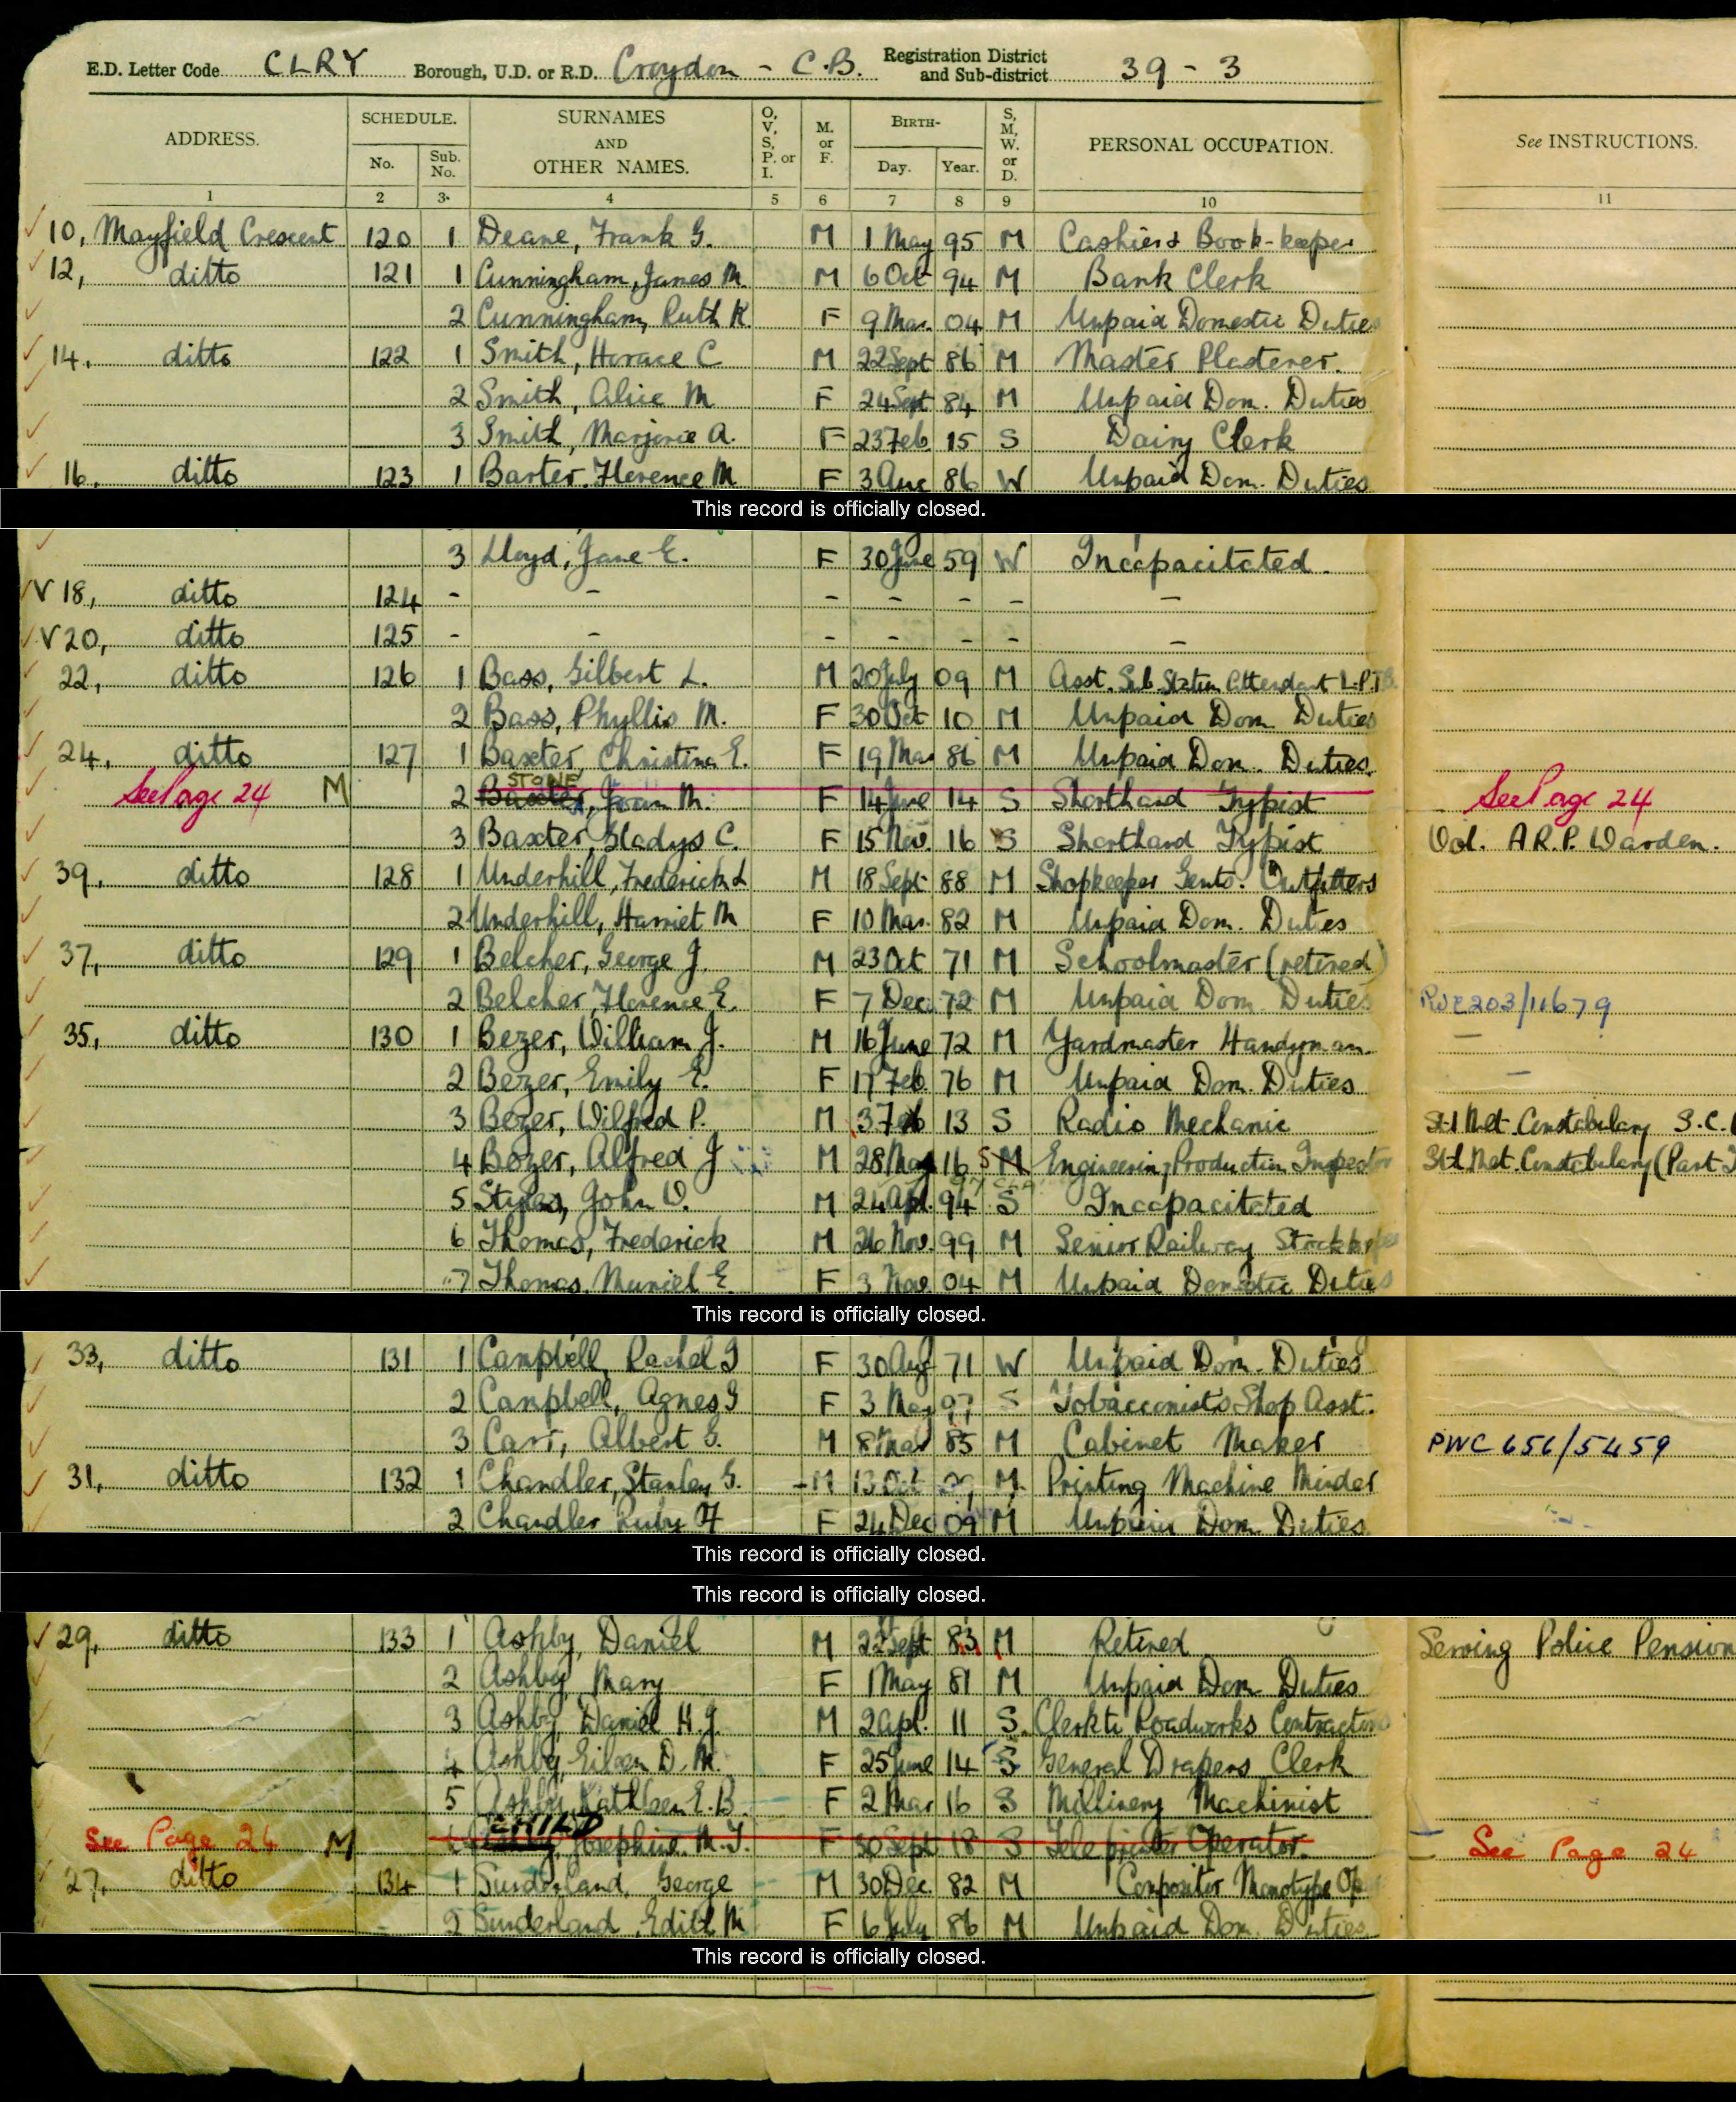 E.D. Letter Code CLRY Borough, U.D. or R.D. Croydon - C.B. Registration District and Sub-district 39 - 3
ADDRESS. SCHEDULE. No. Sub. No. SURNAMES AND OTHER NAMES. O, V, S, P. or I. M. or F. BIRTH- Day. Year. S, M, W. or D. PERSONAL OCCUPATION. See INSTRUCTIONS.
1 2 3. 4 5 6 7 8 9 10 11
10, Mayfield Crescent 120 1 Deane, Frank G. M 1 May 95 M Cashier & Book-keeper
12, ditto 121 1 Cunningham, James M. M 6 Oct 94 M Bank Clerk
2 Cunningham, Ruth K F 9 Mar. 04 M Unpaid Domestic Duties
14, ditto 122 1 Smith, Horace C M 22 Sept 86 M Master Plasterer.
2 Smith, Alice M F 24 Sept 84 M Unpaid Dom. Duties
3 Smith, Marjorie A. F 23 Feb 15 S Dairy Clerk
16, ditto 123 1 Barter, Florence M F 3 Aug 86 W Unpaid Dom. Duties
This record is officially closed.
3 Lloyd, Jane E. F 30 June 59 W Incapacitated.
V 18, ditto 124 - - - - - - -
V 20, ditto 125 - - - - - - -
22, ditto 126 1 Bass, Gilbert L. M 20 July 09 M Asst. Sub Station Attendant L.P.T.B.
2 Bass, Phyllis M. F 30 Oct 10 M Unpaid Dom. Duties
24, ditto 127 1 Baxter, Christina E. F 19 Mar 86 M Unpaid Dom. Duties.
See Page 24 M 2 Baxter STONE, Joan M. F 14 June 14 S Shorthand Typist See Page 24
3 Baxter, Gladys C. F 15 Nov. 16 S Shorthand Typist Vol. A.R.P. Warden.
39, ditto 128 1 Underhill, Frederick L M 18 Sept 88 M Shopkeeper Gents. Outfitters
2 Underhill, Harriet M F 10 Mar. 82 M Unpaid Dom. Duties
37, ditto 129 1 Belcher, George J. M 23 Oct 71 M Schoolmaster (retired)
2 Belcher, Florence E. F 7 Dec. 72 M Unpaid Dom. Duties
35, ditto 130 1 Bezer, William J. M 16 June 72 M Yardmaster Handyman.
2 Bezer, Emily E. F 17 Feb. 76 M Unpaid Dom. Duties
3 Bezer, Wilfred P. M 3 Feb 13 S Radio Mechanic Met. Constabulary S.C.
4 Bezer, Alfred J M 28 May 16 S M Engineering Production Inspector Met. Constabulary (Part
5 Styles, John W. M 24 Apl. 94 S Incapacitated
6 Thomas, Frederick M 26 Nov. 99 M Senior Railway Storekeeper
7 Thomas, Muriel E. F 3 Nov. 04 M Unpaid Domestic Duties
This record is officially closed.
33, ditto 131 1 Campbell, Rachel I F 30 Aug 71 W Unpaid Dom. Duties
2 Campbell, Agnes I F 3 May 97 S Tobacconist's Shop Asst.
3 Carr, Albert G. M 8 Mar 85 M Cabinet Maker PWC 656/5459
31, ditto 132 1 Chandler, Stanley G. M 13 Oct M Printing Machine Minder
2 Chandler Ruby F 24 Dec 09 M Unpaid Dom. Duties.
This record is officially closed.
This record is officially closed.
29, ditto 133 1 Ashby, Daniel M 22 Sept 83 M Retired Serving Police Pension
2 Ashby, Mary F 1 May 81 M Unpaid Dom Duties
3 Ashby, Daniel H.J. M 2 Apl. 11 S. Clerk to Roadworks Contractors
4 Ashby, Eileen D.M. F 25 June 14 S General Drapers Clerk
5 Ashby, Kathleen E.B. F 2 Mar 16 S Millinery Machinist
See Page 24 M CHILD Josephine M.T. F 30 Sept 18 S Teleprinter Operator. See Page 24
27, ditto 134 1 Sunderland, George M 30 Dec. 82 M Compositor Monotype Op
2 Sunderland, Edith M F 6 July 86 M Unpaid Dom. Duties
This record is officially closed.